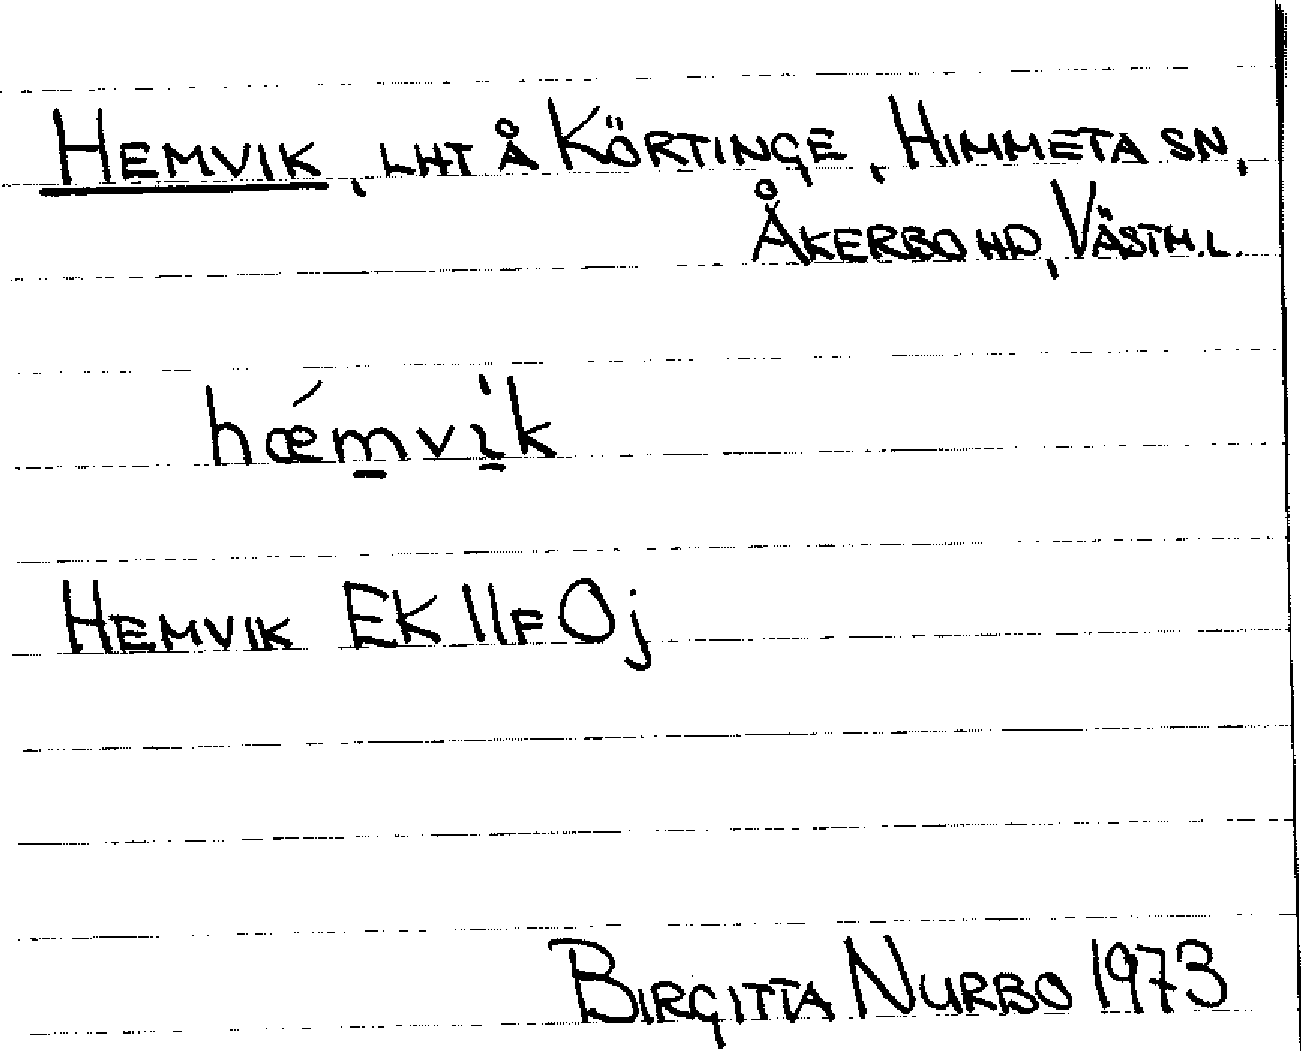 HEMVIK, LHT Å KÖRTINGE, HIMMETA SN,
ÅKERBO HD, VÄSTM.L.
hǽm̲vì̲k
HEMVIK EK 11F 0j
BIRGITTA NURBO 1973